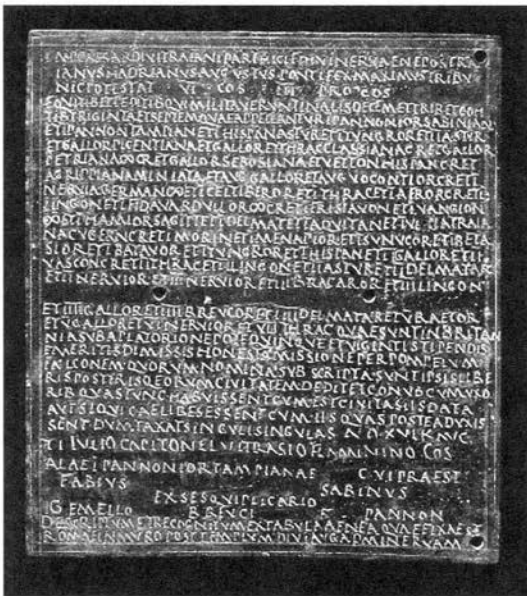 IMP CAESAR DIVI TRAIANI PARTHICI F DIVI NERVAE NEPOS TRA
IANVS HADRIANVS AVGVSTVS PONTIFEX MAXIMVS TRIBV
NIC POTESTAT VI COS III PROCOS
EQVITIB ET PEDITIB QVI MILITAVERVNT IN ALIS DECEM ET TRIB ET COH
TIB TRIGINTA ET SEPTEM QVAE APPELLANTVR I PANNONIOR SABINIAN
ET I PANNON TAMPIAN ET I HISPAN ASTVR ET I TVNGROR ET II ASTVR
ET GALLOR PICENTIANA ET GALLOR ET THRAC CLASSIANA C R ET GALLOR
PETRIANA ∞ C R ET GALLOR SEBOSIANA ET VETTON HISPAN C R ET
AGRIPPIANA MINIATA ET AVG GALLOR ET AVG VOCONTIOR C R ET I
NERVIA GERMAN ∞ ET I CELTIBEROR ET I THRAC ET I AFROR C R ET I
LINGON ET I FIDA VARDVLLOR ∞ C R ET I FRISIAVON ET I VANGION
∞ ET I HAMIOR SAGITT ET I DELMAT ET I AQVITAN ET I VLPIA TRAIA
NA CVGERN C R ET I MORIN ET I MENAPIOR ET I SVNVCOR ET I BETA
SIOR ET I BATAVOR ET I TVNGROR ET I HISPAN ET II GALLOR ET II
VASCON C R ET II THRAC ET II LINGON ET II ASTVR ET II DELMATAR
ET II NERVIOR ET III NERVIOR ET III BRACAROR ET III LINGON
ET IIII GALLOR ET IIII BREVCOR ET IIII DELMATAR ET V RAETOR
ET V GALLOR ET VI NERVIOR ET VII THRAC QVAE SVNT IN BRITAN
NIA SVB A PLATORIO NEPOTE QVINQVE ET VIGINTI STIPENDIS
EMERITIS DIMISSIS HONESTA MISSIONE PER POMPEIVM
FALCONEM QVORVM NOMINA SVBSCRIPTA SVNT IPSIS LIBE
RIS POSTERISQ EORVM CIVITATEM DEDIT ET CONVB CVM VXO
RIB QVAS TVNC HABVISSENT CVM EST CIVITAS IIS DATA
AVT SIQVI CAELIBES ESSENT CVM IIS QVAS POSTEA DVXIS
SENT DVMTAXAT SINGVLI SINGVLAS A D XVI K AVG
TI IVLIO CAPITONE L VITRASIO FLAMININO COS
ALAE I PANNONIOR TAMPIANAE CVI PRAEST
FABIVS SABINVS
EX SESQVIPLICARIO
GEMELLO BREVCI F PANNON
DESCRIPTVM ET RECOGNITVM EX TABVLA AENEA QVAE FIXA EST
ROMAE IN MVRO POST TEMPLVM DIVI AVG AD MINERVAM